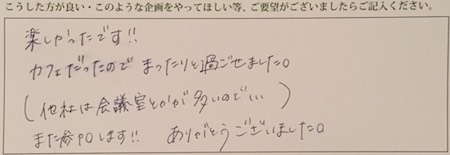 こうした方が良い・このような企画をやってほしい等、ご要望がございましたらご記入ください。
楽しかったです!!
カフェだったので まったりと過ごせました。
(他社は会議室とかが多いので… )
また参加します!! ありがとうございました。